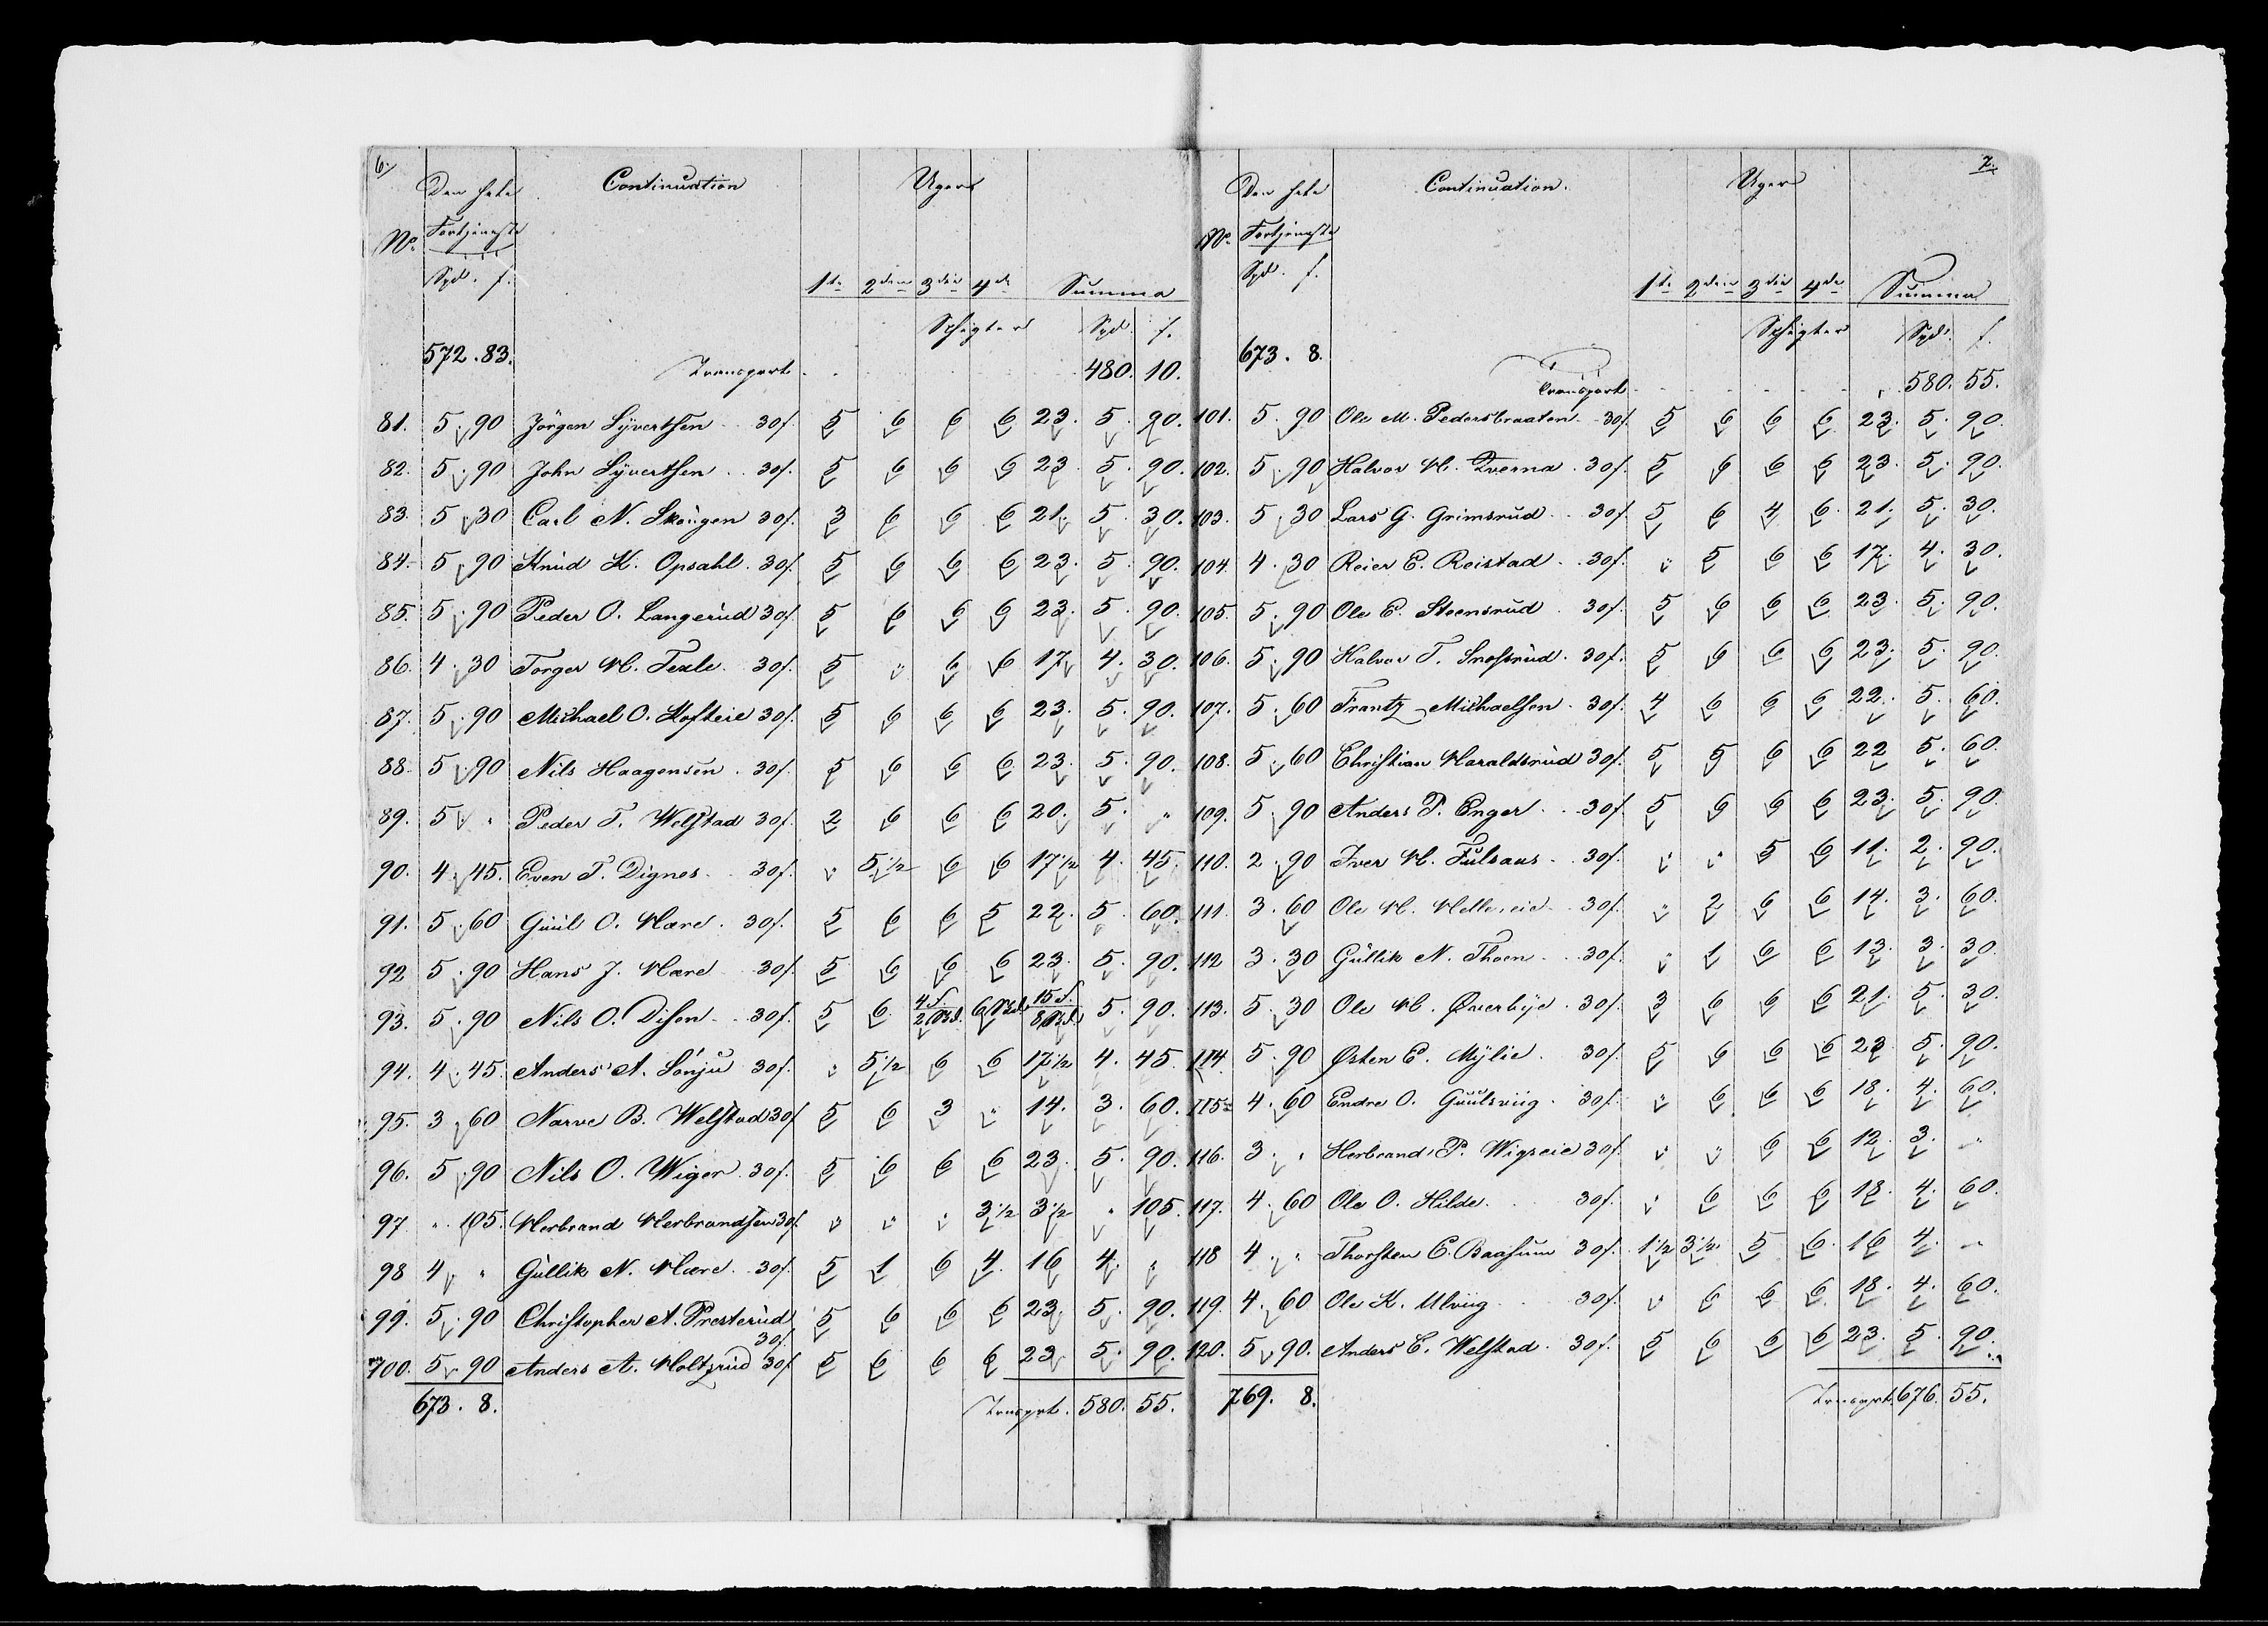 6.
Den hele Continuation Uger
No. Fortjeneste
Spd. ſ. 1te 2den 3die 4de Summa
Schigter Spd. ſ.
572. 83. Transport 480. 10.
81. 5. 90 Jörgen Syvertsen 30ſ. 5 6 6 6 23. 5. 90.
82. 5. 90 John Syvertsen 30ſ. 5 6 6 6 23. 5. 90.
83. 5 30 Carl N. Skougen 30ſ. 3 6 6 6 21. 5. 30.
84. 5 90 Knud K. Opsahl 30ſ. 5 6 6 6 23. 5. 90.
85. 5. 90 Peder O. Langerud 30ſ. 5 6 6 6 23. 5. 90.
86. 4. 30 Torger H. Texle 30ſ. 5 " 6 6 17 4. 30.
87. 5. 90 Michael O. Hofteie 30ſ. 5 6 6 6 23. 5. 90.
88. 5. 90 Nils Haagensen 30ſ. 5 6 6 6 23. 5. 90.
89. 5 " Peder T. Welstad 30ſ. 2 6 6 6 20. 5. "
90. 4. 45. Even T. Dignes 30ſ. " 5 1/2 6 6 17 1/2 4. 45.
91. 5. 60 Guul O. Hære 30ſ. 5 6 6 5 22. 5. 60.
92 5. 90 Hans J. Hære 30ſ. 5 6 6 6 23. 5. 90.
93. 5. 90 Nils O. Disen 30ſ. 5 6. 4 S. 2 6 15 S. 8 5. 90.
94. 4. 45. Anders A. Sönju 30ſ. " 5 1/2 6 6 17 1/2 4. 45.
95. 3 60 Narve B. Welstad 30ſ 5 6 3 " 14. 3. 60.
96. 5. 90 Nils O. Wiger 30ſ. 5 6 6 6 23. 5. 90.
97 " 105. Herbrand Herbrandsen 30ſ. " " " 3 1/2 3 1/2 " 105.
98 4 " Gullik N. Hære 30ſ. 5 1 6 4. 16 4. "
99. 5. 90 Christopher A. Presterud 5 6 6 6 23. 5. 90.
30ſ.
100. 5 90 Anders A. Holtzrud 30ſ. 5 6 6 6 23 5. 90.
673. 8. Transprt. 580. 55.
7.
Den hele Continuation. Uger
No. Fortjeneste
Spd. ſ. 1te 2den 3die 4de Summa
Schigter Spd. ſ.
673. 8. Transport 580. 55.
101. 5. 90 Ole M. Pedersbraaten 30ſ. 5 6 6 6 23. 5. 90.
102. 5. 90 Halvor H. Tverna 30ſ. 5 6 6 6 23. 5. 90.
103. 5 30 Lars G. Grimsrud 30ſ. 5 6 4 6. 21. 5. 30.
104. 4. 30 Reier E. Reistad 30ſ. " 5 6 6 17. 4. 30.
105. 5. 90 Ole E. Steensrud 30ſ. 5 6 6 6 23. 5. 90.
106. 5. 90 Halvor T. Snofsrud 30ſ. 5 6 6 6 23. 5. 90.
107. 5. 60 Frantz Michaelsen 30ſ. 4 6 6 6 22. 5. 60.
108. 5. 60 Christian Haraldsrud 30ſ. 5 5 6 6 22 5. 60.
109. 5 90 Anders P. Enger 30ſ. 5 6 6 6 23. 5. 90.
110. 2. 90 Iver H. Fulsaas 30ſ. " " 5 6 11. 2. 90.
111. 3. 60 Ole H. Helleseie 30ſ. " 2 6 6 14. 3. 60.
112 3. 30 Gullik N. Thoen 30ſ. " 1 6 6 13. 3. 30.
113. 5. 30 Ole H. Øverbye 30ſ. 3 6 6 6 21. 5. 30.
114. 5. 90 Østen E. Mylie 30ſ. 5 6 6 6 23. 5. 90.
115. 4. 60 Endre O. Guulsviig 30ſ. " 6 6 6 18. 4. 60.
116. 3. " Herbrand P. Wigseie 30ſ. " " 6 6 12. 3. "
117. 4. 60 Ole O. Hilde 30ſ. " 6 6 6 18. 4. 60.
118 4. " Thorsten E. Baasum 30ſ. 1 1/2 3 1/2 5 6. 16 4. "
119. 4. 60 Ole K. Ulviig 30ſ. " 6 6 6 18. 4. 60.
120. 5 90. Anders E. Welstad 30ſ. 5 6 6 6 23. 5. 90.
769. 8. Transprt. 676. 55.